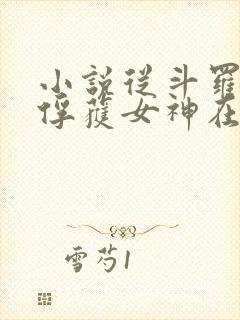 小説從斗羅
俘獲女神在
雪芍1